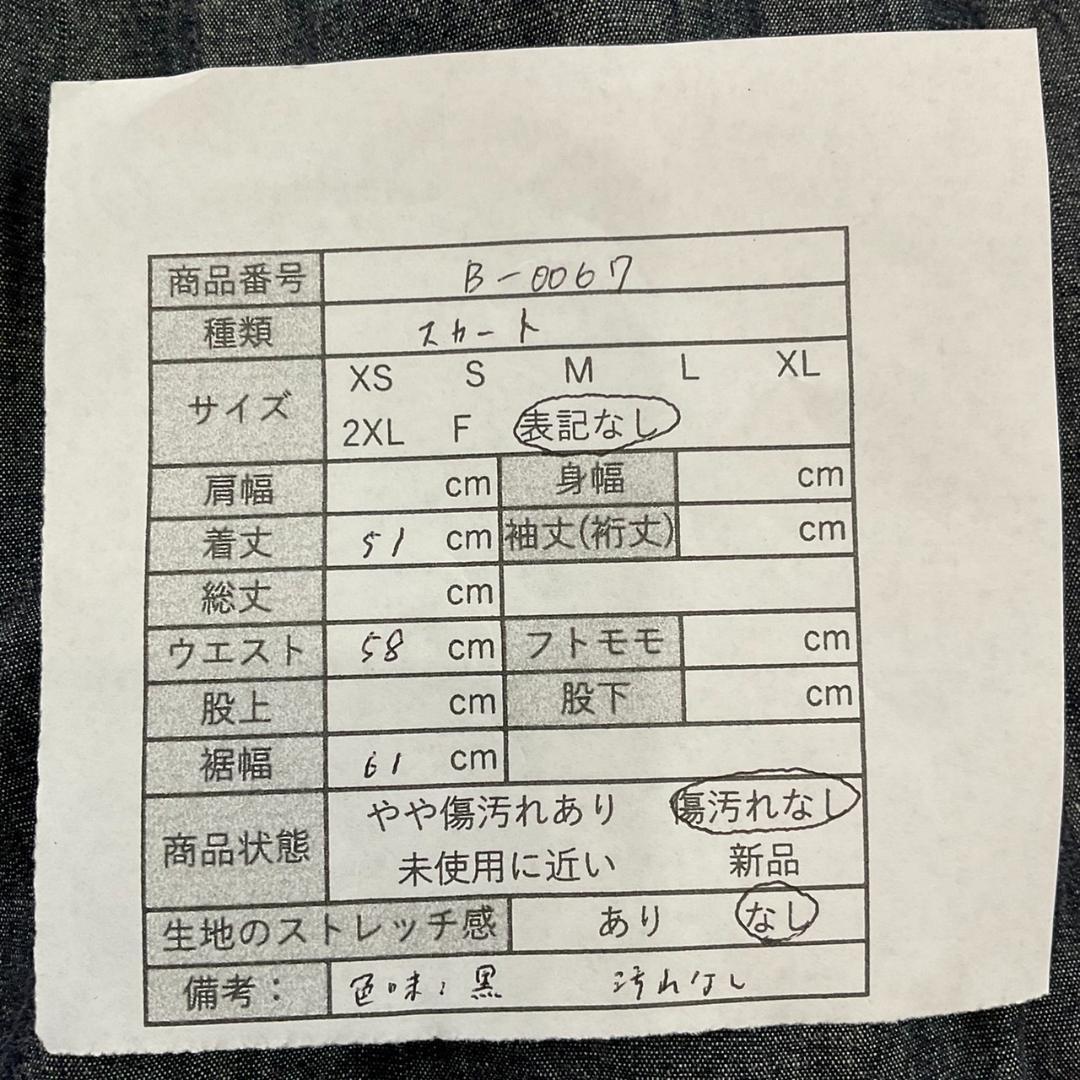 商品番号 B-0067
種類 スカート
サイズ XS S M L XL
2XL F 表記なし
肩幅 cm 身幅 cm
着丈 51 cm 袖丈(裄丈) cm
総丈 cm
ウエスト 58 cm フトモモ cm
股上 cm 股下 cm
裾幅 61 cm
商品状態 やや傷汚れあり 傷汚れなし
未使用に近い 新品
生地のストレッチ感 あり なし
備考： 色味：黒 汚れなし